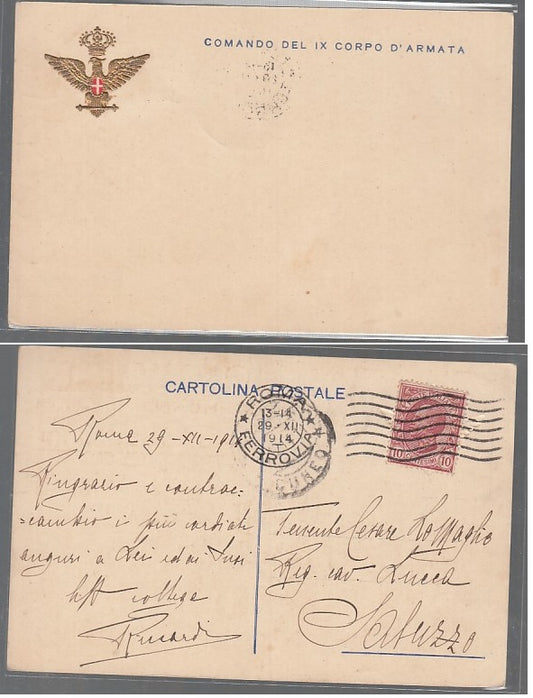 COMANDO DEL IX CORPO D'ARMATA
CARTOLINA POSTALE
ROMA
13-14
29·XII
1914
FERROVIA
CUNEO
10 10
Roma 29-XII-1914
Ringrazio e contrac=
=cambio i più cordiali
auguri a Lei ed ai Suoi
collega
Ricardi
Tenente Cesare
Reg. cav. Lucca
Saluzzo